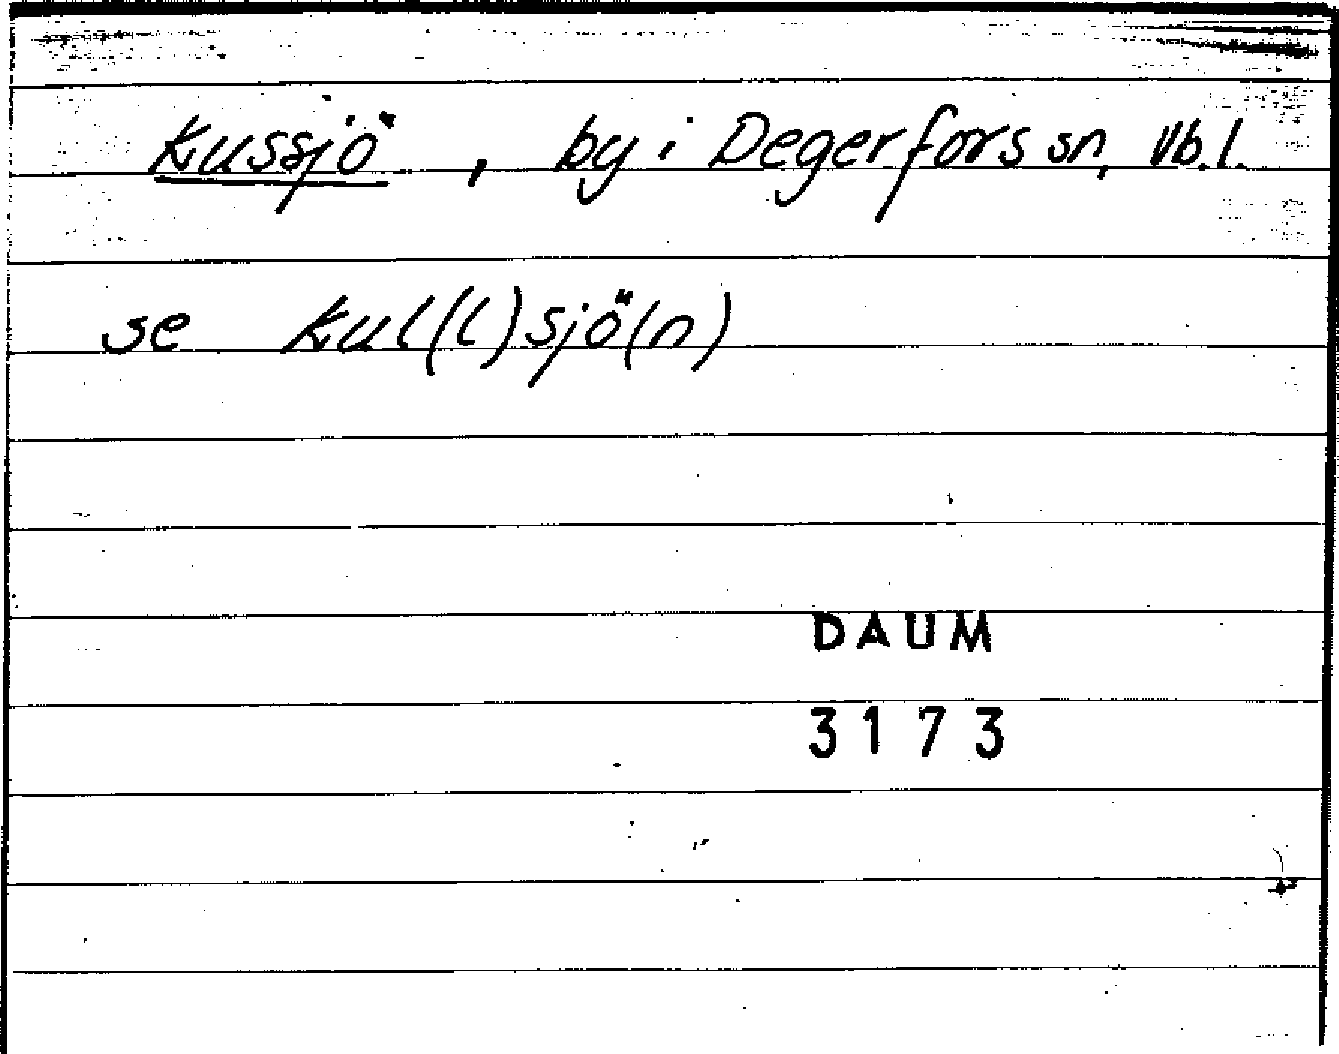 Kussjö, by i Degerfors sn, Vb.l.
se Kul(l)sjö(n)
DAUM
3173